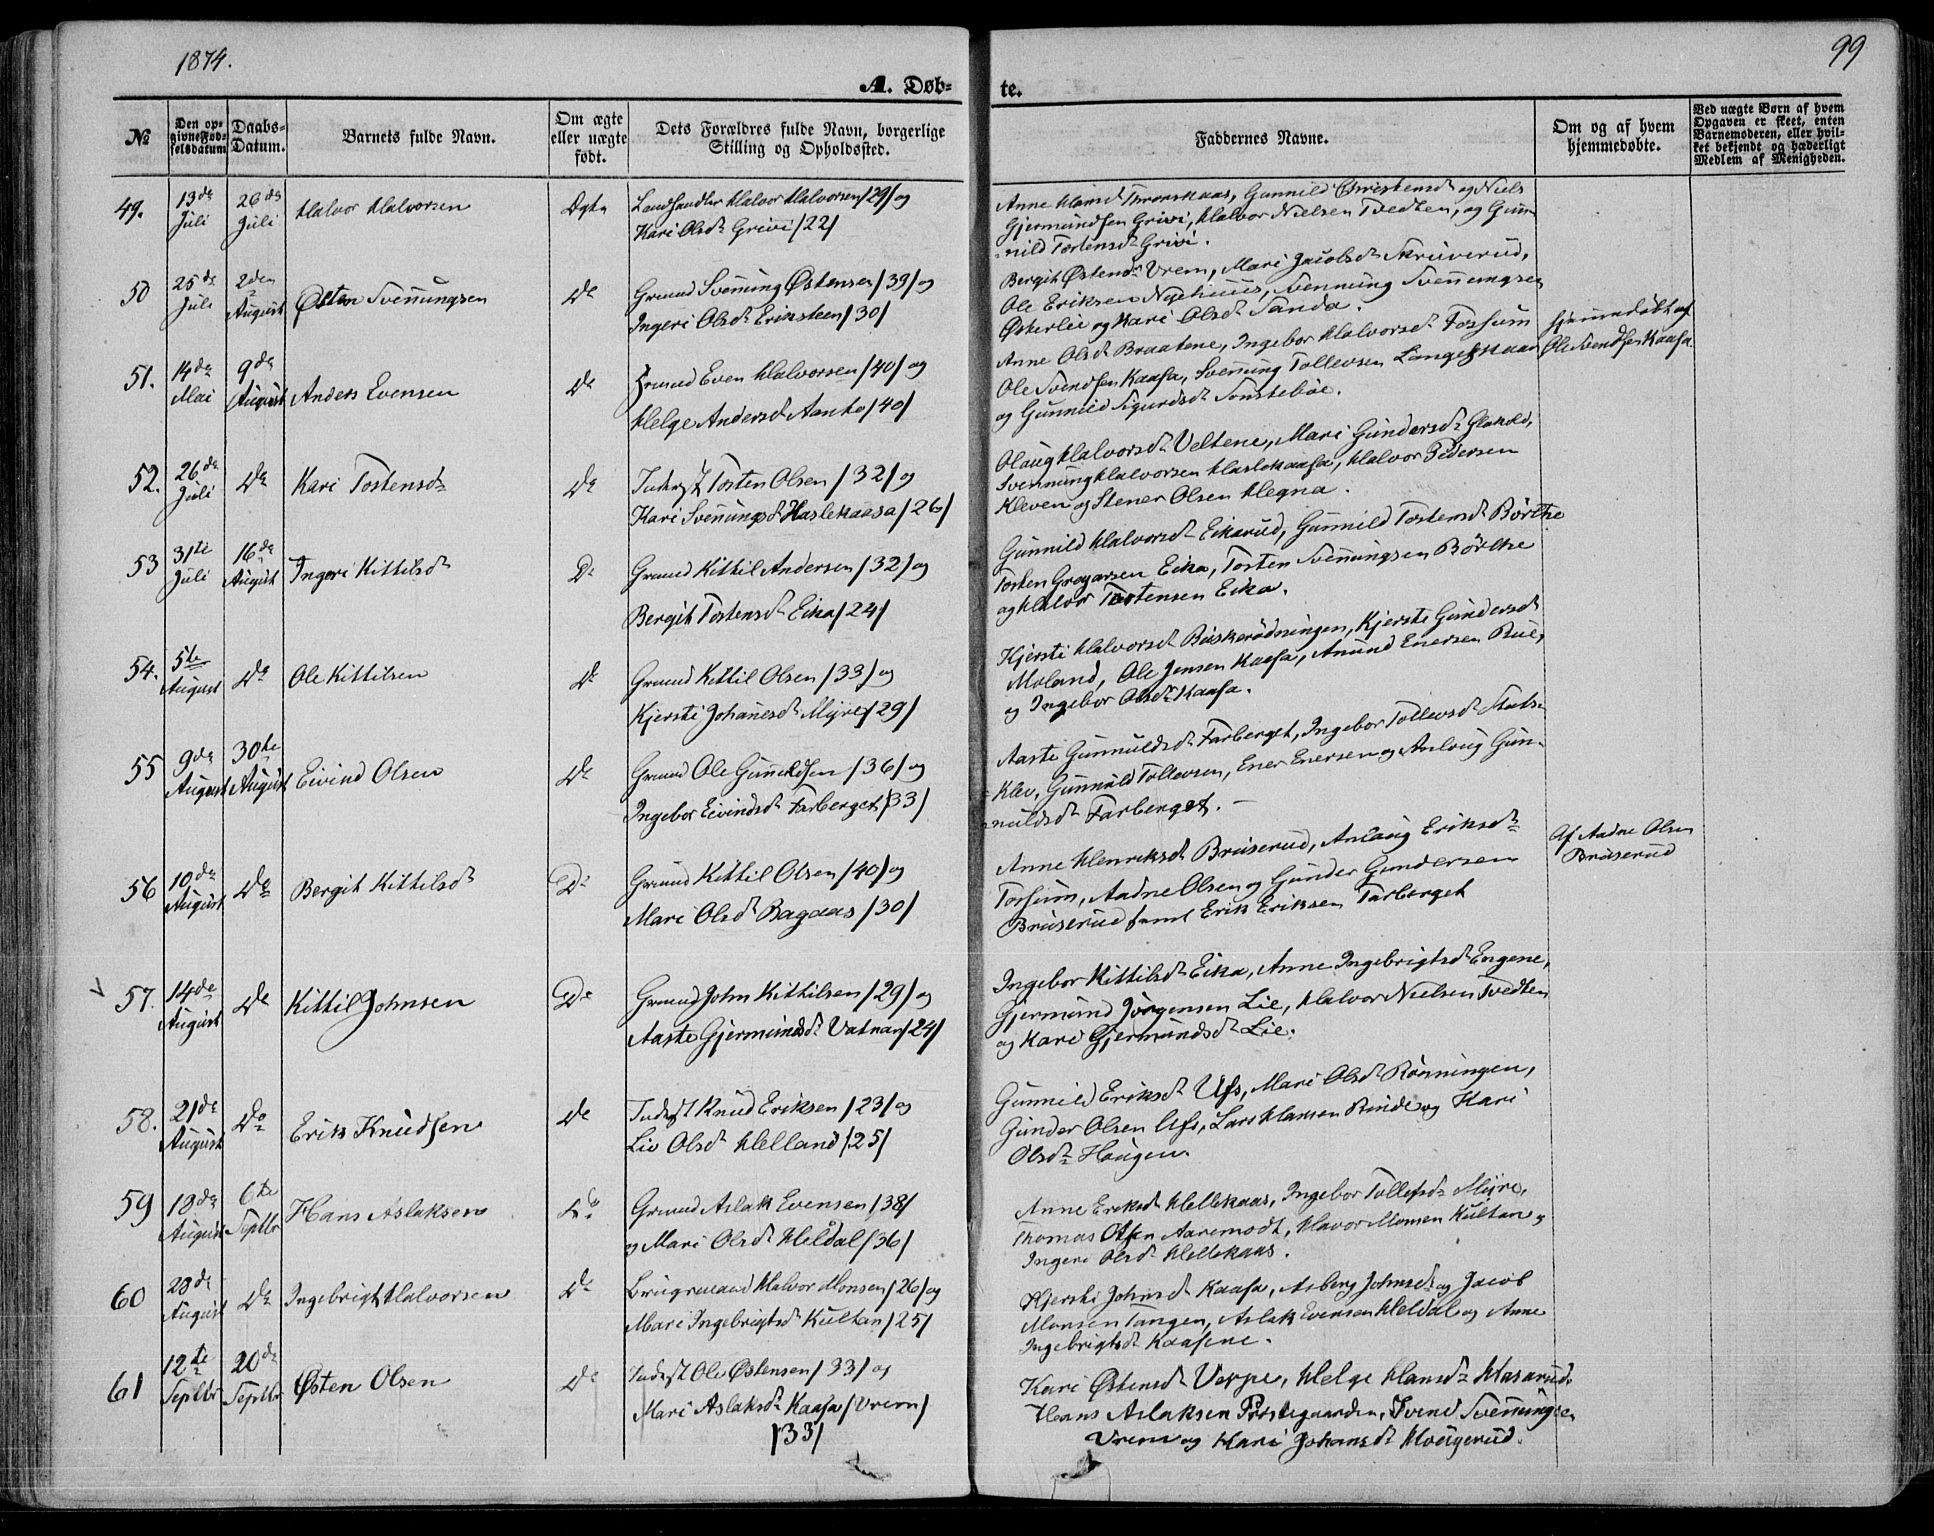 1874.
99
A. Døb-
te.
№
Den op-
givne Fød-
selsdatum
Daabs-
Datum.
Barnets fulde Navn.
Om ægte
eller uægte
født.
Dets Forældres fulde Navn, borgerlige
Stilling og Opholdssted.
Faddernes Navne.
Om og af hvem
hjemmedøbte.
Ved uægte Børn af hvem
Opgaven er skeet, enten
Barnemoderen, eller hvil-
ket bekjendt og hæderligt
Medlem af Menigheden.
49.
13de
Juli
26de
Juli
Halvor Halvorsen
Ægte
Landhandler Halvor Halvorsen /29/ og
Kari Olsdr Grivi /22/
Anne Hansdr, Gunnild Christensdr og Niels
Gjermundsen Grivi, Halvor Nielsen Tvedten, og Gun-
nild Tostensdr Grivi.
50
25de
Juli
2den
August
Østen Svenungsen
Do
Grmnd Svenung Østensen /39/ og
Ingeri Olsdr Eriksteen /30/
Bergit Østensdr Vrem, Mari Jacobsdr Skriverud,
Ole Eriksen Nyehuus, Svennung Svennungsen
Østerlie og Kari Olsdr Sanda.
51.
14de
Mai
9de
August
Anders Evensen
Do
Grmnd Even Halvorsen /40/ og
Helge Andersdr Aanho /40/
Anne Olsdr Braatene, Ingebor Halvorsdr Fossum
Ole Svendsen Kaasa, Svenung Tollevsen Langeskaas
og Gunnild Sigurdsdr Sønstebøe.
hjemmedøbt af
Ole Svendsen Kaasa.
52.
26de
Juli
Do
Kari Tostensdr
Do
Inderst Tosten Olsen /32/ og
Kari Svenungsdr Haslekaasa /26/
Olaug Halvorsdr Veltene, Mari Gundersdr,
Svennung Halvorsen Haslekaasa, Halvor Pedersen
Kleven og Stener Olsen Hegna.
53
31te
Juli
16de
August
Ingeri Kittilsdr
Do
Grmnd Kittil Andersen /32/ og
Bergit Tostensdr Eika /24/
Gunnild Halvorsdr Eikarud, Gunnild Tostensdr Børthe
Tosten Gregarsen Eika, Tosten Svenungsen Børthe
og Halvor Tostensen Eika.
54.
5te
August
Do
Ole Kittilsen
Do
Grmnd Kittil Olsen /33/ og
Kjersti Johanesdr Myre /29/
Kjersti Halvorsdr, Kjerste Gundersdr
Moland, Ole Jensen Kaasa, Anund Enersen Rue,
og Ingebor Olsdr Kaasa.
55
9de
August
30te
August
Eivind Olsen
Do
Grmnd Ole Gunuldsen /36/ og
Ingebor Eivindsdr Farberget /33/
Aaste Gunnuldsdr Farberget, Ingebor Tollevsdr Stuts-
klev, Gunnuld Tollevsen, Ener Enersen og Anlaug Gun-
nuldsdr Farberget. –
56
10de
August
Do
Bergit Kittilsdr
Do
Grmnd Kittil Olsen /40/ og
Mari Olsdr Bagaas /30/
Anne Henriksdr Bruserud, Anlaug Eriksdr
Fossum, Aadne Olsen og Gunder Gundersen
Bruserud samt Erik Eriksen Farberget
Af Aadne Olsen
Bruserud
V
57.
14de
August
Do
Kittil Johnsen
Do
Grmnd John Kittilsen /29/ og
Aaste Gjermundsdr Vatnar /24/
Ingebor Kittilsdr Eika, Anne Ingebrigtsdr Engene,
Gjermund Jørgensen Lie, Halvor Nielsen Tvedten
og Kari Gjermundsdr Lie.
58.
21de
August
Do
Erik Knudsen
Do
Inderst Knud Eriksen /23/ og
Liv Olsdr Helland /25/
Gunnild Eriksdr Ufs, Mari Olsdr Rønningen,
Gunder Olsen Ufs, Lars Hansen Rinde og Kari
Olsdr Haugen.
59
18de
August
6te
Septbr
Hans Aslaksen
Do
Grmnd Aslak Evensen /38/
og Mari Olsdr Heldal /36/
Anne Eriksdr Hellekaas, Ingebor Tollefsdr Myre,
Thomas Olsen Aaremodt, Havor Monsen Kultan og
Ingeri Olsdr Hellekaas.
60
28de
August
Do
Ingebrigt Halvorsen
Do
Brugmand Halvor Monsen /26/ og
Mari Ingebrigtsdr Kultan /25/
Kjersti Johnsdr Kaasa, Asberg Johnsdr og Jacob
Monsen Tangen, Aslak Evensen Heldal og Anne
Ingebrigtsdr Kaasene.
61
12te
Septbr
20de
Septbr
Østen Olsen
Do
Inderst Ole Østensen /33/ og
Mari Aslaksdr Kaasa /Vrem/
/33/
Kari Østensdr Verpe, Helge Hansdr Hasarud.
Hans Aslaksen Prestegaarden, Svend Svennungsen
Vrem og Kari Johansdr Haugerud.